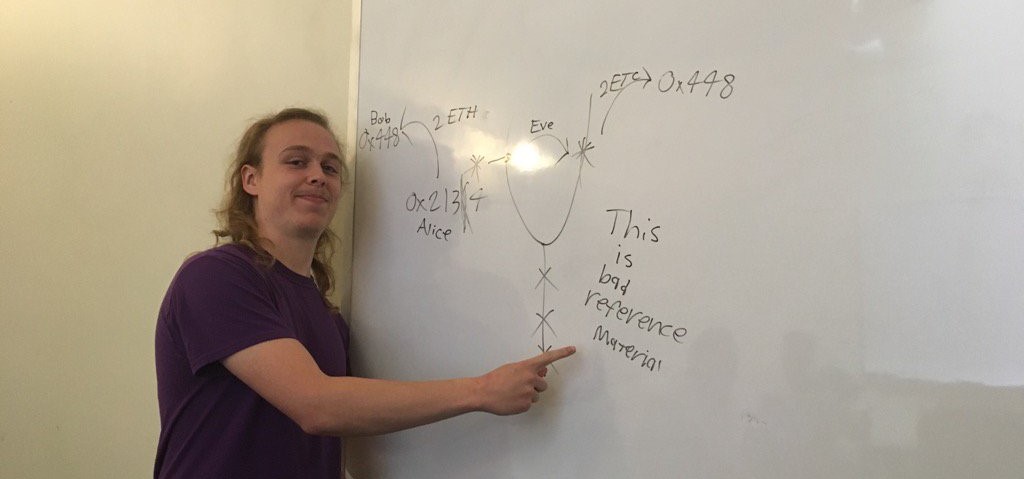 Bob
0x448
2 ETH
0x2134
Alice
Eve
2 ETC
0x448
This
is
bad
reference
Material